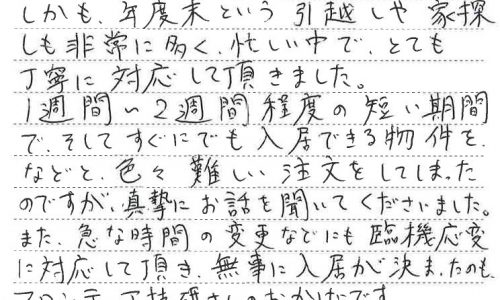 しかも、年度末という引越しや家探
しも非常に多く、忙しい中で、とても
丁寧に対応して頂きました。
1週間〜2週間程度の短い期間
で、そしてすぐにでも入居できる物件を、
などと、色々難しい注文をしてしまった
のですが、真摯にお話を聞いてくださいました。
また、急な時間の変更などにも臨機応変
に対応して頂き、無事に入居が決まったのも、
フロンティア技研さんのおかげです